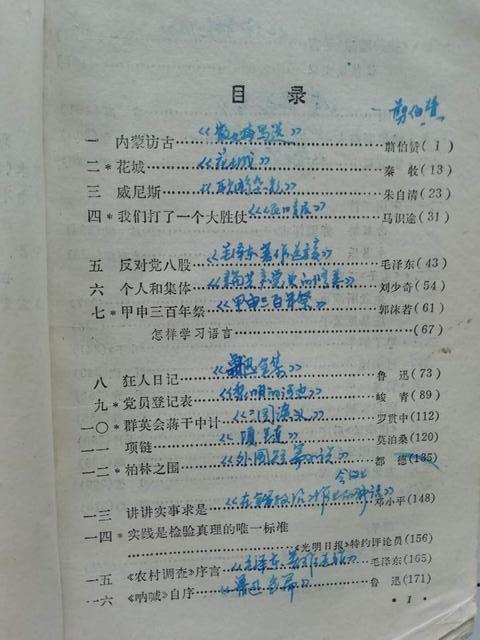 目录
翦伯赞
一 内蒙访古……《散文特写选》……翦伯赞(1)
二*花城……《花城》……秦牧(13)
三 威尼斯……《欧游杂记》……朱自清(23)
四*我们打了一个大胜仗……马识途(31)
五 反对党八股……《毛泽东著作选读》……毛泽东(43)
六 个人和集体……刘少奇(54)
七*甲申三百年祭……《甲申三百年祭》……郭沫若(61)
怎样学习语言……(67)
八 狂人日记……《鲁迅全集》……鲁迅(73)
九*党员登记表……《黎明的河边》……峻青(89)
一〇*群英会蒋干中计……《三国演义》……罗贯中(112)
一一 项链……《项链》……莫泊桑(120)
一二*柏林之围……《外国短篇小说》……都德(135)
一三 讲讲实事求是……邓小平(148)
一四*实践是检验真理的唯一标准
……《光明日报》特约评论员(156)
一五《农村调查》序言……《毛泽东著作选读》……毛泽东(165)
一六《呐喊》自序……《鲁迅全集》……鲁迅(171)
·1·